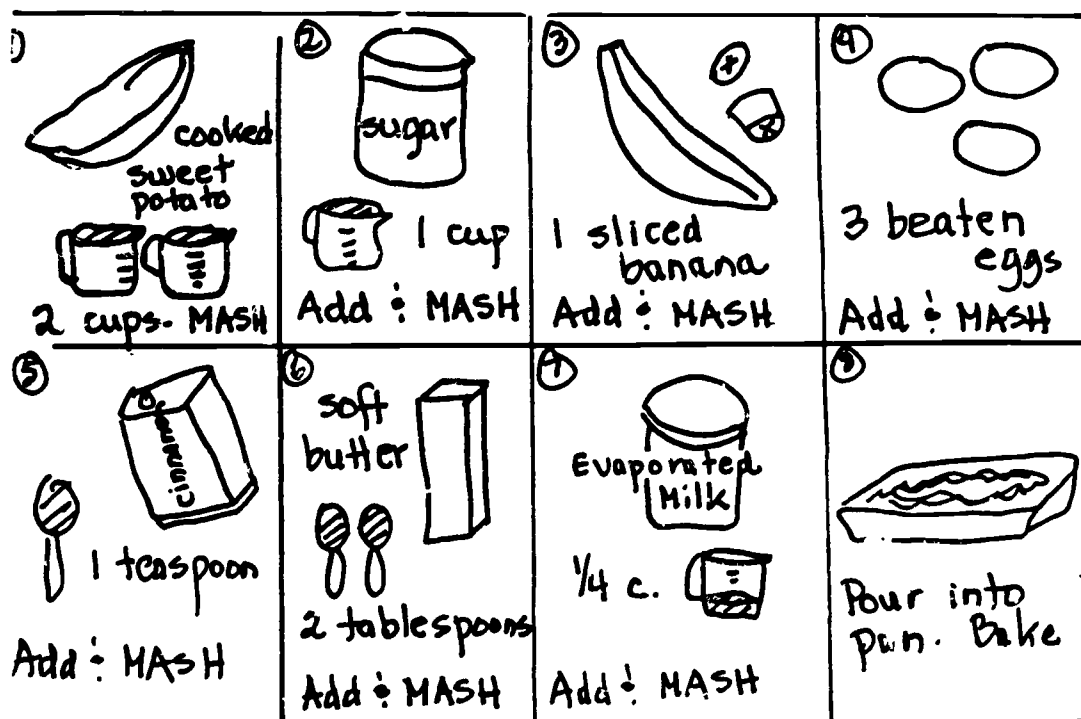 1)
cooked
sweet
potato
2 cups. MASH
2
sugar
1 cup
Add & MASH
3
1 sliced
banana
Add & MASH
4
3 beaten
eggs
Add & MASH
5
cinnamon
1 teaspoon
Add & MASH
6
soft
butter
2 tablespoons
Add & MASH
7
Evaporated
Milk
1/4 c.
Add & MASH
8
Pour into
pan. Bake